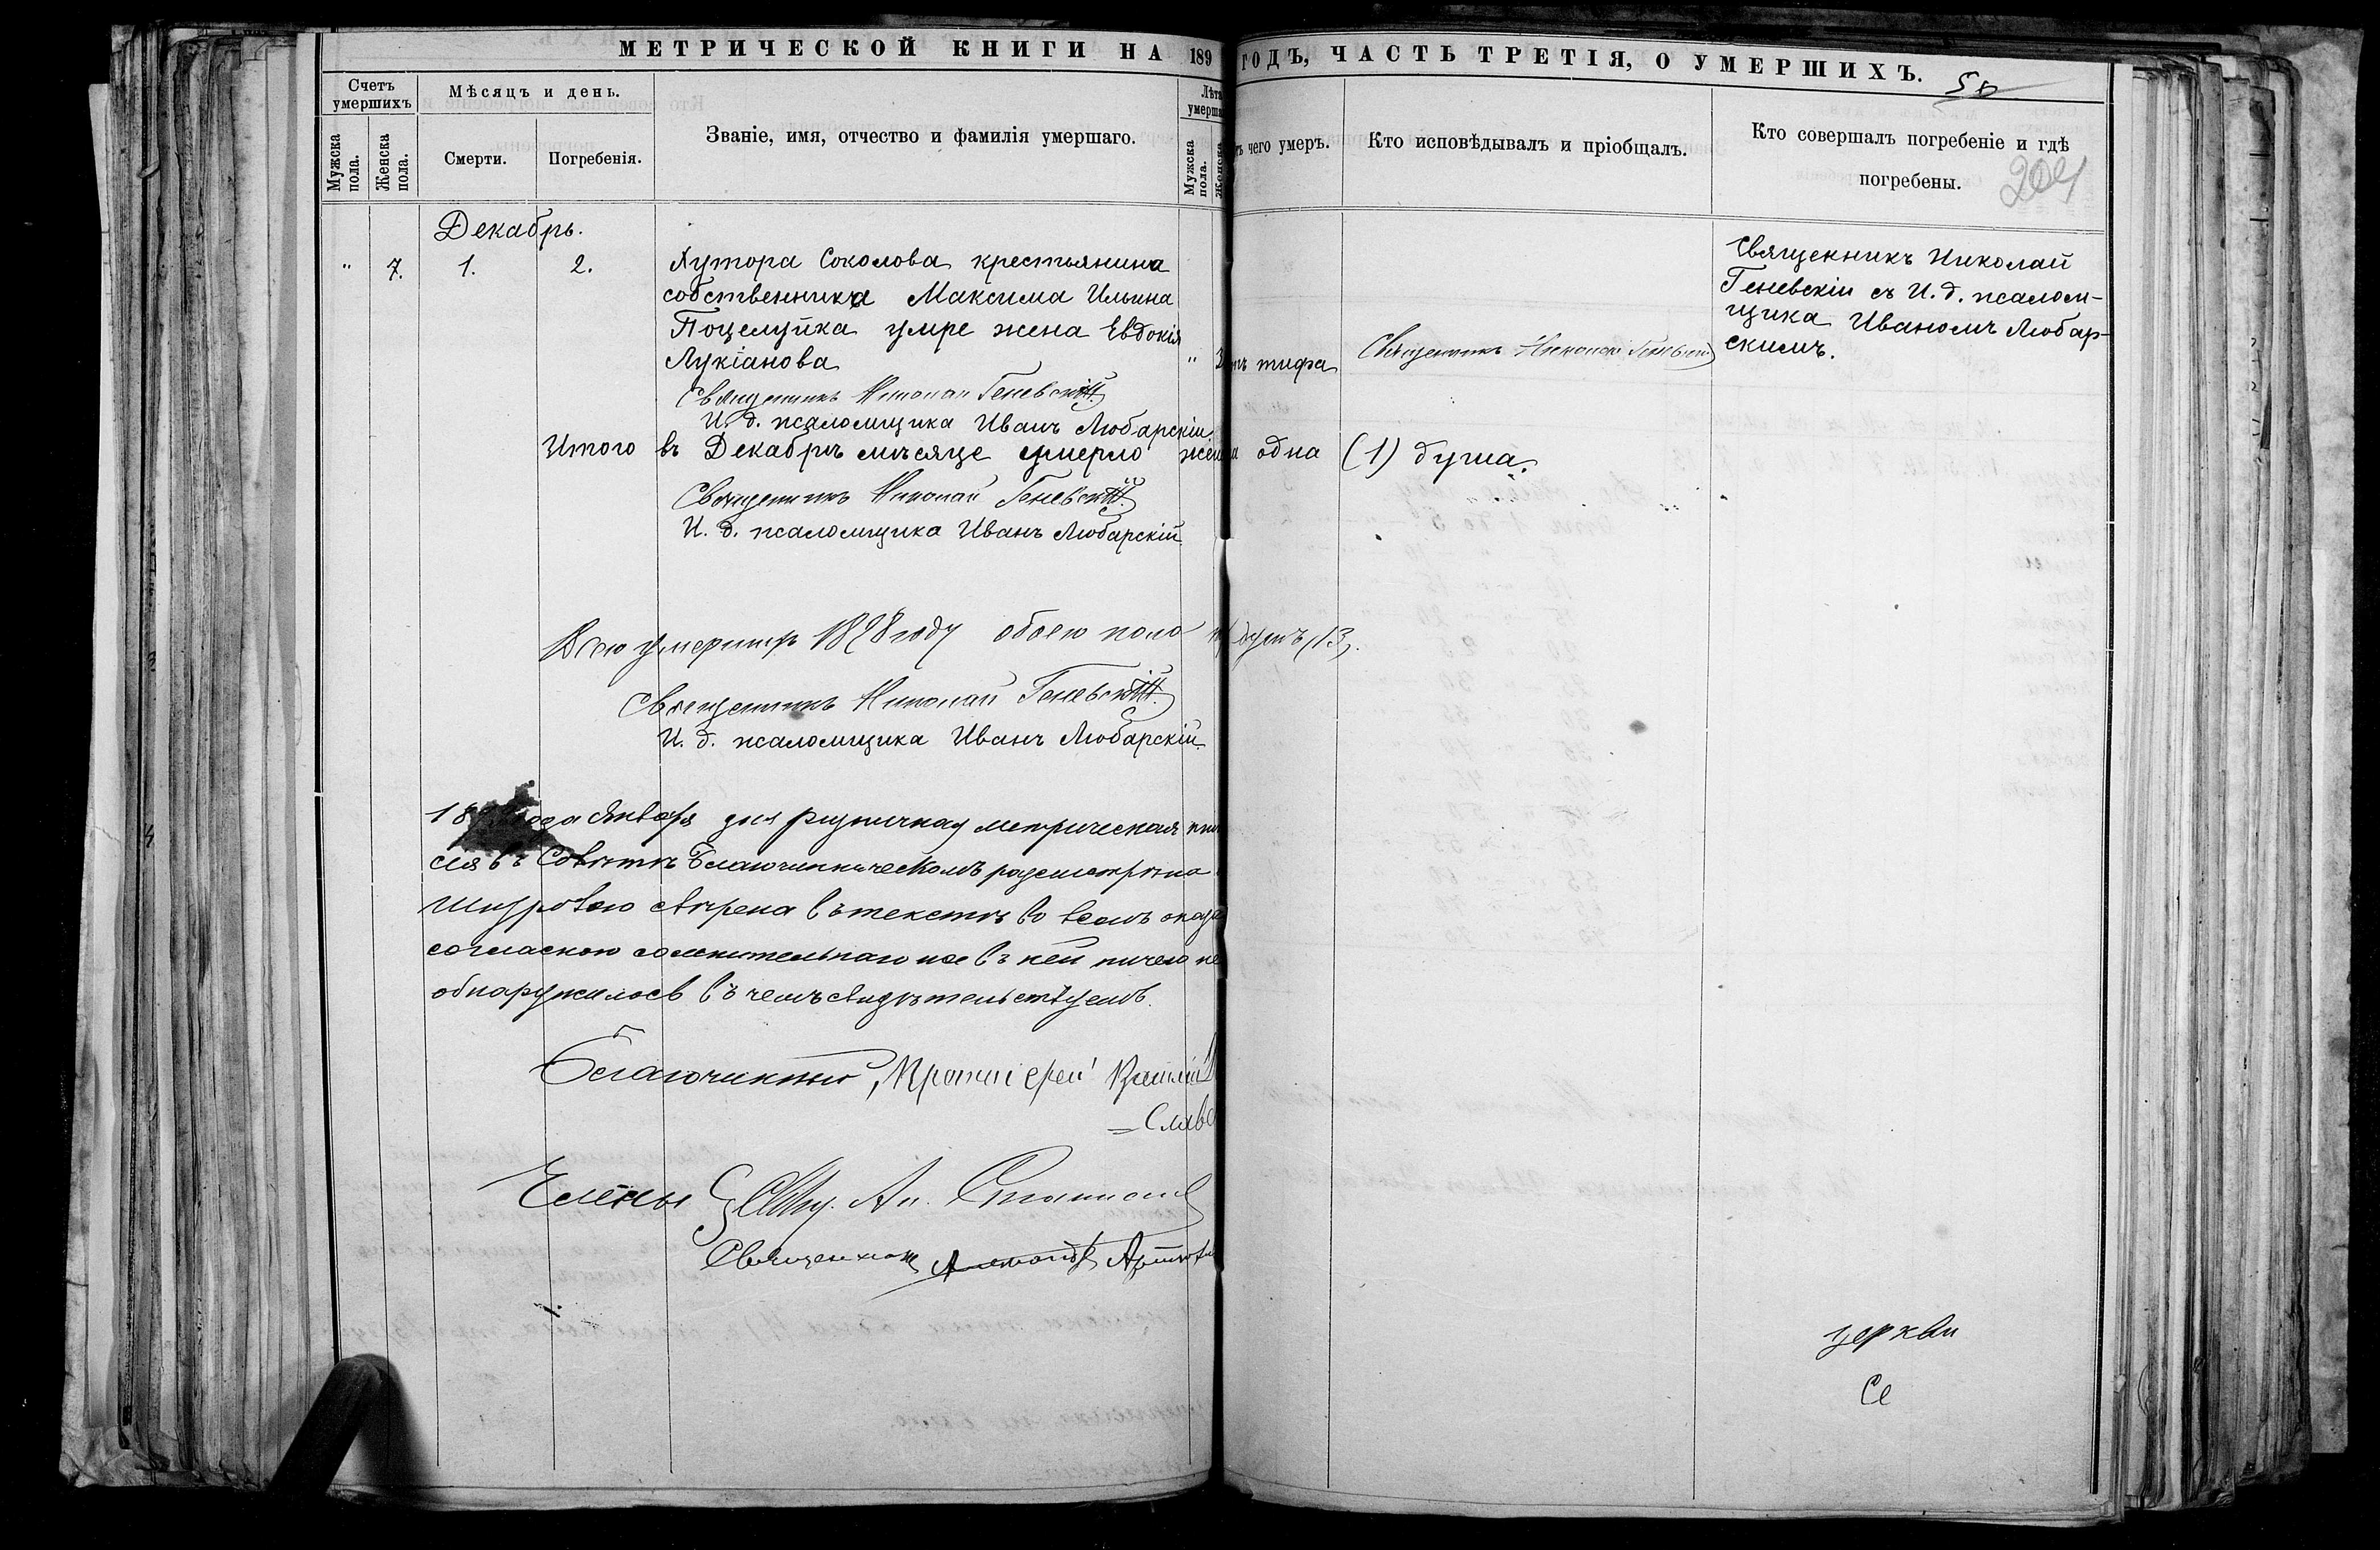 МЕТРИЧЕСКОЙ КНИГИ НА 189 ГОДЪ, ЧАСТЬ ТРЕТІЯ, О УМЕРШИХЪ.
50
204
Счетъ умершихъ
Мѣсяцъ и день.
Званіе, имя, отчество и фамилія умершаго.
Лѣта умерша
Мужска пола.
Женска пола.
Смерти.
Погребенія.
Мужска пола.
Женска
чего умеръ.
Кто исповѣдывалъ и пріобщалъ.
Кто совершалъ погребеніе и гдѣ
погребены.
Декабрь.
" 7. 1. 2. Хутора Соколова крестьянина
собственника Максима Ильина
Поцелуйка умре жена Евдокія
Лукіанова " 3 отъ тифа
Священникъ Николай Геневскій
Священникъ Николай
Геневскій съ И. д. псалом-
щика Иваномъ Любар-
скимъ.
Священникъ Николай Геневскій.
И. д. псаломщика Иванъ Любарскій.
Итого въ Декабрѣ мѣсяце умерло жен одна (1) душа.
Священникъ Николай Геневскій.
И. д. псаломщика Иванъ Любарскій.
Всего умершихъ 1898 году обоего пола душъ 13.
Священникъ Николай Геневскій.
И. д. псаломщика Иванъ Любарскій.
18 года Января дня ризничная метрическая кни
сія въ Совѣтѣ Благочинническомъ разсмотрѣна
шнуровою свѣрена въ текстѣ во всемъ оказа
согласною сомнительнаго же въ ней ничего не
обнаружилось въ чемъ свидѣтельствуемъ.
Благочинный, Протоіерей
Слав
Члены
Священникъ
церкви
Се